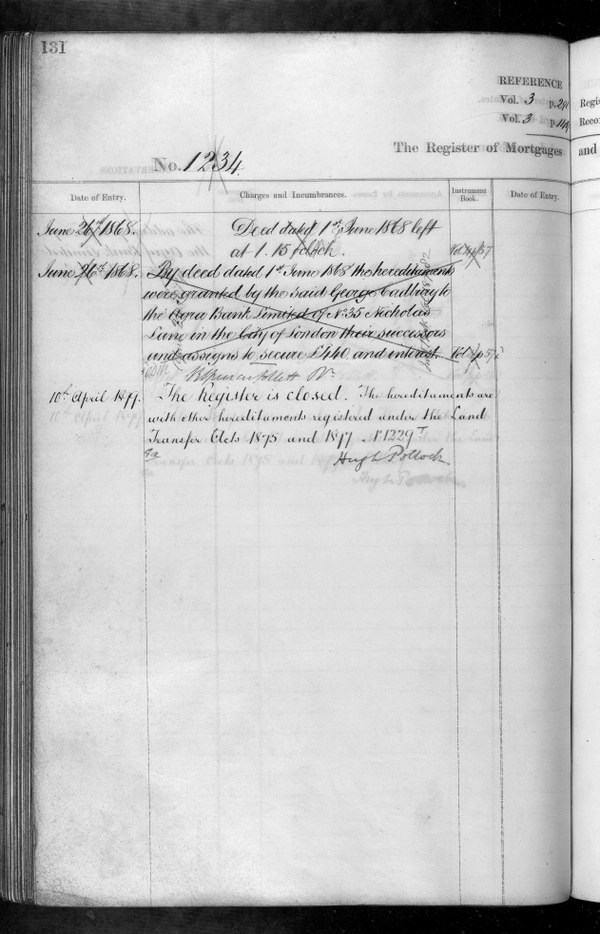 131
REFERENCE
Vol. 3 p.
Vol. 3 p.
Regis
Recor
The Register of Mortgages and
No. 1234.
Date of Entry.
Charges and Incumbrances.
Instrument Book.
Date of Entry.
June 26th 1868.
Deed dated 1st June 1868 left
at 1.15 o'clock.
June 26th 1868.
By deed dated 1st June 1868 the hereditaments
were granted by the said George Cadbury to
the Agra Bank Limited of No. 35 Nicholas
Lane in the City of London their successors
and assigns to secure £440 and interest.
10th April 1899.
The Register is closed. The hereditaments are
with other hereditaments registered under the Land
Transfer Acts 1875 and 1897 No. 1229
Hugh Pollock